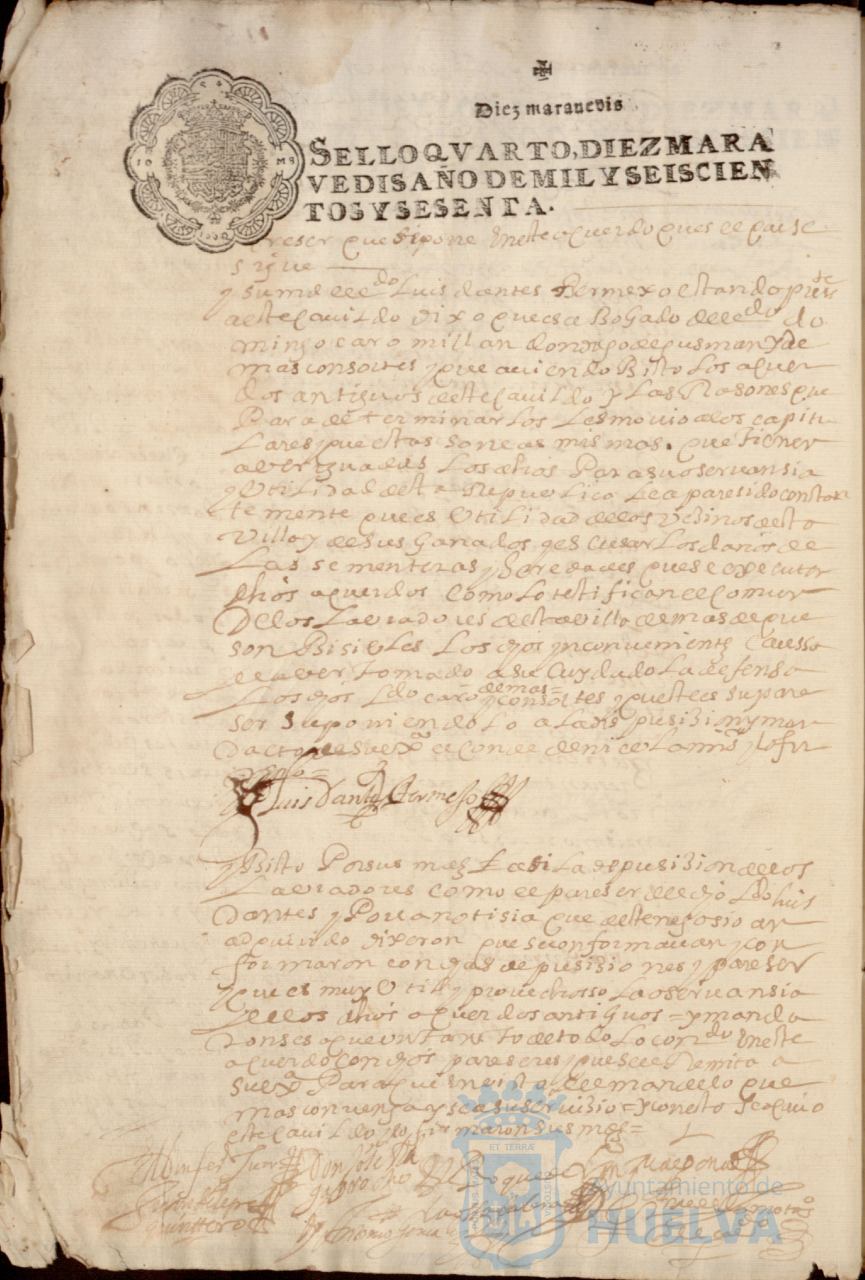 Diez maravedis
SELLO QVARTO, DIEZ MARA
VEDIS AÑO DE MIL Y SEISCIEN
TOS Y SESENTA.
que se pone en este acuerdo ques el que se
sigue
y su md el ldo Luis dantes Bermexo estando preste
a este cavildo dixo que es aBogado del ldo do
mingo caro millan don de gusman y de
mas consortes y que aviendo Bisto los aquer
dos antiguos deste cavildo y las Rasones que
Para determinarlos les movio a los capitu
lares que estas son las mismas que tienen
averiguadas los dhos Para su oservansia
y Utilidad desta Republica le a paresido constan
te mente que es Utilidad de los vesinos desta
villa y de sus ganados y escusar los daños de
las sementeras y Heredades que se executen
dhos aquerdos como lo testifican el comun
De los Labradores desta villa demas de que
son Bisibles los dhos ynconvenientes
el aver tomado a su cuydado la defensa
Los dhos Ldo caro demas y consortes y que este es su pare
ser suponiendolo a la disposision y man
dato de su exa el conde de niebla mi sr y lo fir
Luis dantes Bermejo
y Bisto Por sus mds asi la deposision de los
Labradores como el pareser del dho Ldo luis
Dantes y Por la notisia que deste negosio an
adquirido dixeron que se conformavan y con
formaron con dhas deposisiones y pareser
y que es muy Util y provechosso la oservansia
de los dhos aquerdos antiguos = y manda
ron se saque un tanto de todo lo contdo en este
aquerdo con dhos pareseres y que se le Remita a
su exa Para que en vista de el mande lo que
mas convenga y sea su servisio = y con esto se
este cavildo y lo firmaron sus mds =
ET TERRÆ
Ayuntamiento de
HUELVA